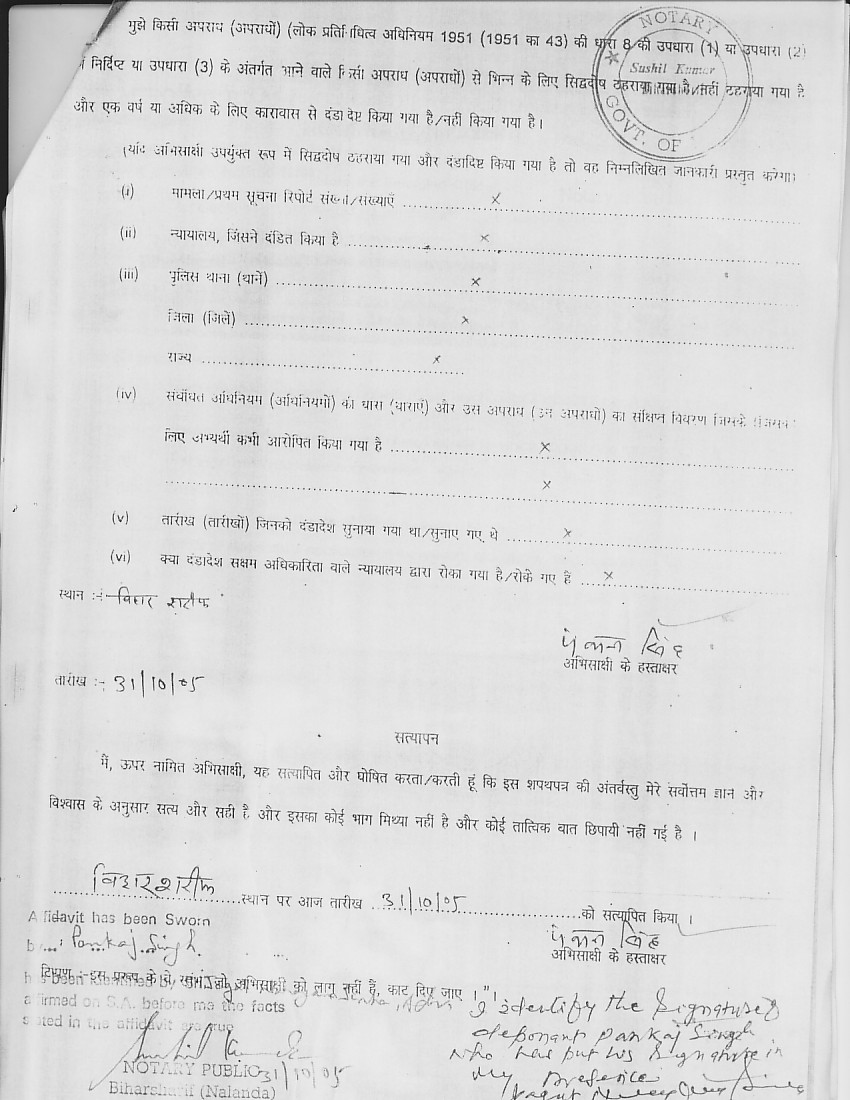 NOTARY
Sushil Kumar
GOVT. OF
मुझे किसी अपराध (अपराधों) (लोक प्रतिनिधित्व अधिनियम 1951 (1951 का 43) की धारा 8 की उपधारा (1) या उपधारा (2)
निर्दिष्ट या उपधारा (3) के अंतर्गत आने वाले किसी अपराध (अपराधों) से भिन्न के लिए सिद्वदोष ठहराया गया है/नहीं ठहराया गया है
और एक वर्ष या अधिक के लिए कारावास से दंडादिष्ट किया गया है/नहीं किया गया है।
(यदि अभिसाक्षी उपर्युक्त रूप में सिद्वदोष ठहराया गया और दंडादिष्ट किया गया है तो वह निम्नलिखित जानकारी प्रस्तुत करेगा।
(i) मामला/प्रथम सूचना रिपोर्ट संख्या/संख्याएँ ........ x ........
(ii) न्यायालय, जिसने दंडित किया है ........ x ........
(iii) पुलिस थाना (थानें) ........ x ........
जिला (जिलें) ........ x ........
राज्य ........ x ........
(iv) संबंधित अधिनियम (अधिनियमों) की धारा (धाराएँ) और उस अपराध (उन अपराधों) का संक्षिप्त विवरण जिसके
लिए अभ्यर्थी कभी आरोपित किया गया है ........ x ........
........ x ........
(v) तारीख (तारीखों) जिनको दंडादेश सुनाया गया था/सुनाए गए थे ........ x ........
(vi) क्या दंडादेश सक्षम अधिकारिता वाले न्यायालय द्वारा रोका गया है/रोके गए हैं ..... x ........
स्थान :- बिहार शरीफ
पंकज सिंह
अभिसाक्षी के हस्ताक्षर
तारीख :- 31/10/05
सत्यापन
मैं, ऊपर नामित अभिसाक्षी, यह सत्यापित और घोषित करता/करती हूं कि इस शपथपत्र की अंतर्वस्तु मेरे सर्वोत्तम ज्ञान और
विश्वास के अनुसार सत्य और सही है और इसका कोई भाग मिथ्या नहीं है और कोई तात्विक बात छिपायी नहीं गई है ।
बिहारशरीफ ........ स्थान पर आज तारीख ..31/10/05........ को सत्यापित किया ।
पंकज सिंह
अभिसाक्षी के हस्ताक्षर
Affidavit has been Sworn
by : Pankaj Singh.
टिप्पण :-इस प्ररूप के वे भाग जो अभिसाक्षी को लागू नहीं हैं, काट दिए जाए ।"।
has been identified by
affirmed on S.A. before me the facts
stated in the affidavit are true
NOTARY PUBLIC 31/10/05
Biharsharif (Nalanda)
I identify the Signature of
deponant Pankaj Singh
who has put his Signature in
my presence